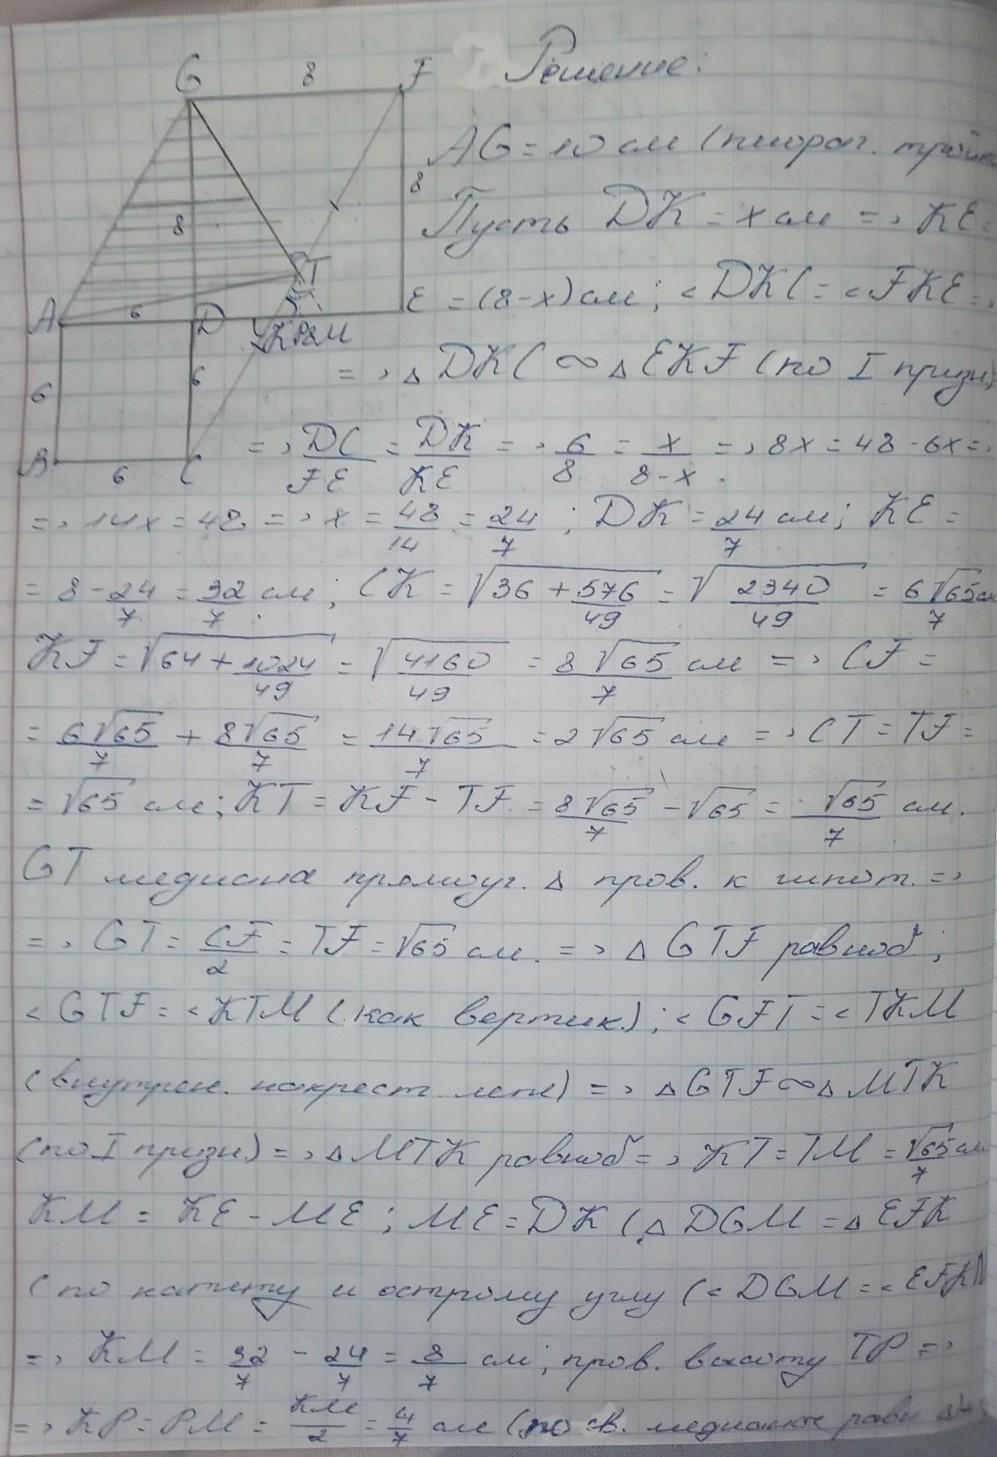 Решение:
G 8 F
AG = 10 см (пифаг. тройка
8
Пусть DK = x см => KE =
8
T
E = (8-x) см; <DKC = <FKE =>
A 6 D
KPM
=> △ DKC ∞ △ EKF (по I призн)
6 6
B 6 C
=> DC/FE = DK/KE => 6/8 = x/8-x => 8x = 48 - 6x =>
=> 14x = 48 => x = 48/14 = 24/7; DK = 24/7 см; KE =
= 8 - 24/7 = 32/7 см; CK = √36 + 576/49 = √2340/49 = 6√65/7 см
KF = √64 + 1024/49 = √4160/49 = 8√65/7 см => CF =
= 6√65/7 + 8√65/7 = 14√65/7 = 2√65 см => CT = TF =
= √65 см; KT = KF - TF = 8√65/7 - √65 = √65/7 см.
GT медиана прямоуг. △ пров. к гипот. =>
=> GT = CF/2 = TF = √65 см. => △ GTF равноб.;
<GTF = <KTM (как вертик.); <GFT = <TKM
(внутрен. накрест леж) => △GTF ∞ △ MTK
(по I призн) => △MTK равноб => KT = TM = √65/7 см
KM = KE - ME; ME = DK (△ DGM = △ EFK
(по катету и острому углу (<DGM = <EFK)
=> KM = 32/7 - 24/7 = 8/7 см; пров. высоту TP =>
=> KP = PM = KM/2 = 4/7 см (по св. медианы равн △